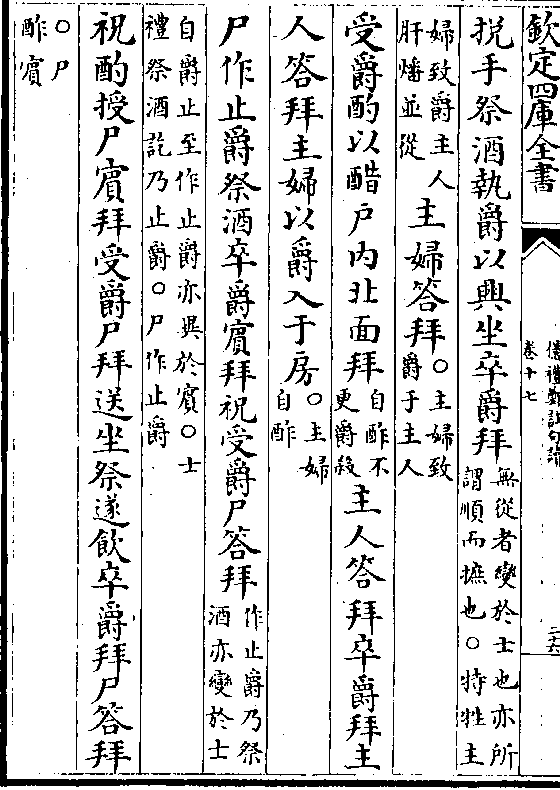 欽定四庫全書
儀禮鄭註句讀
卷十七
挩手祭酒執爵以興坐卒爵拜無從者變於士也亦所謂順而摭也○特牲主
婦致爵主人肝燔並從主婦答拜○主婦致爵于主人
受爵酌以醋戶內北面拜自酢不更爵殺主人答拜卒爵拜主
人答拜主婦以爵入于房○主婦自酢
尸作止爵祭酒卒爵賓拜祝受爵尸答拜作止爵乃祭酒亦變於士
自爵止至作止爵亦異於賓○士禮祭酒訖乃止爵○尸作止爵
祝酌授尸賓拜受爵尸拜送坐祭遂飲卒爵拜尸答拜
○尸酢賓